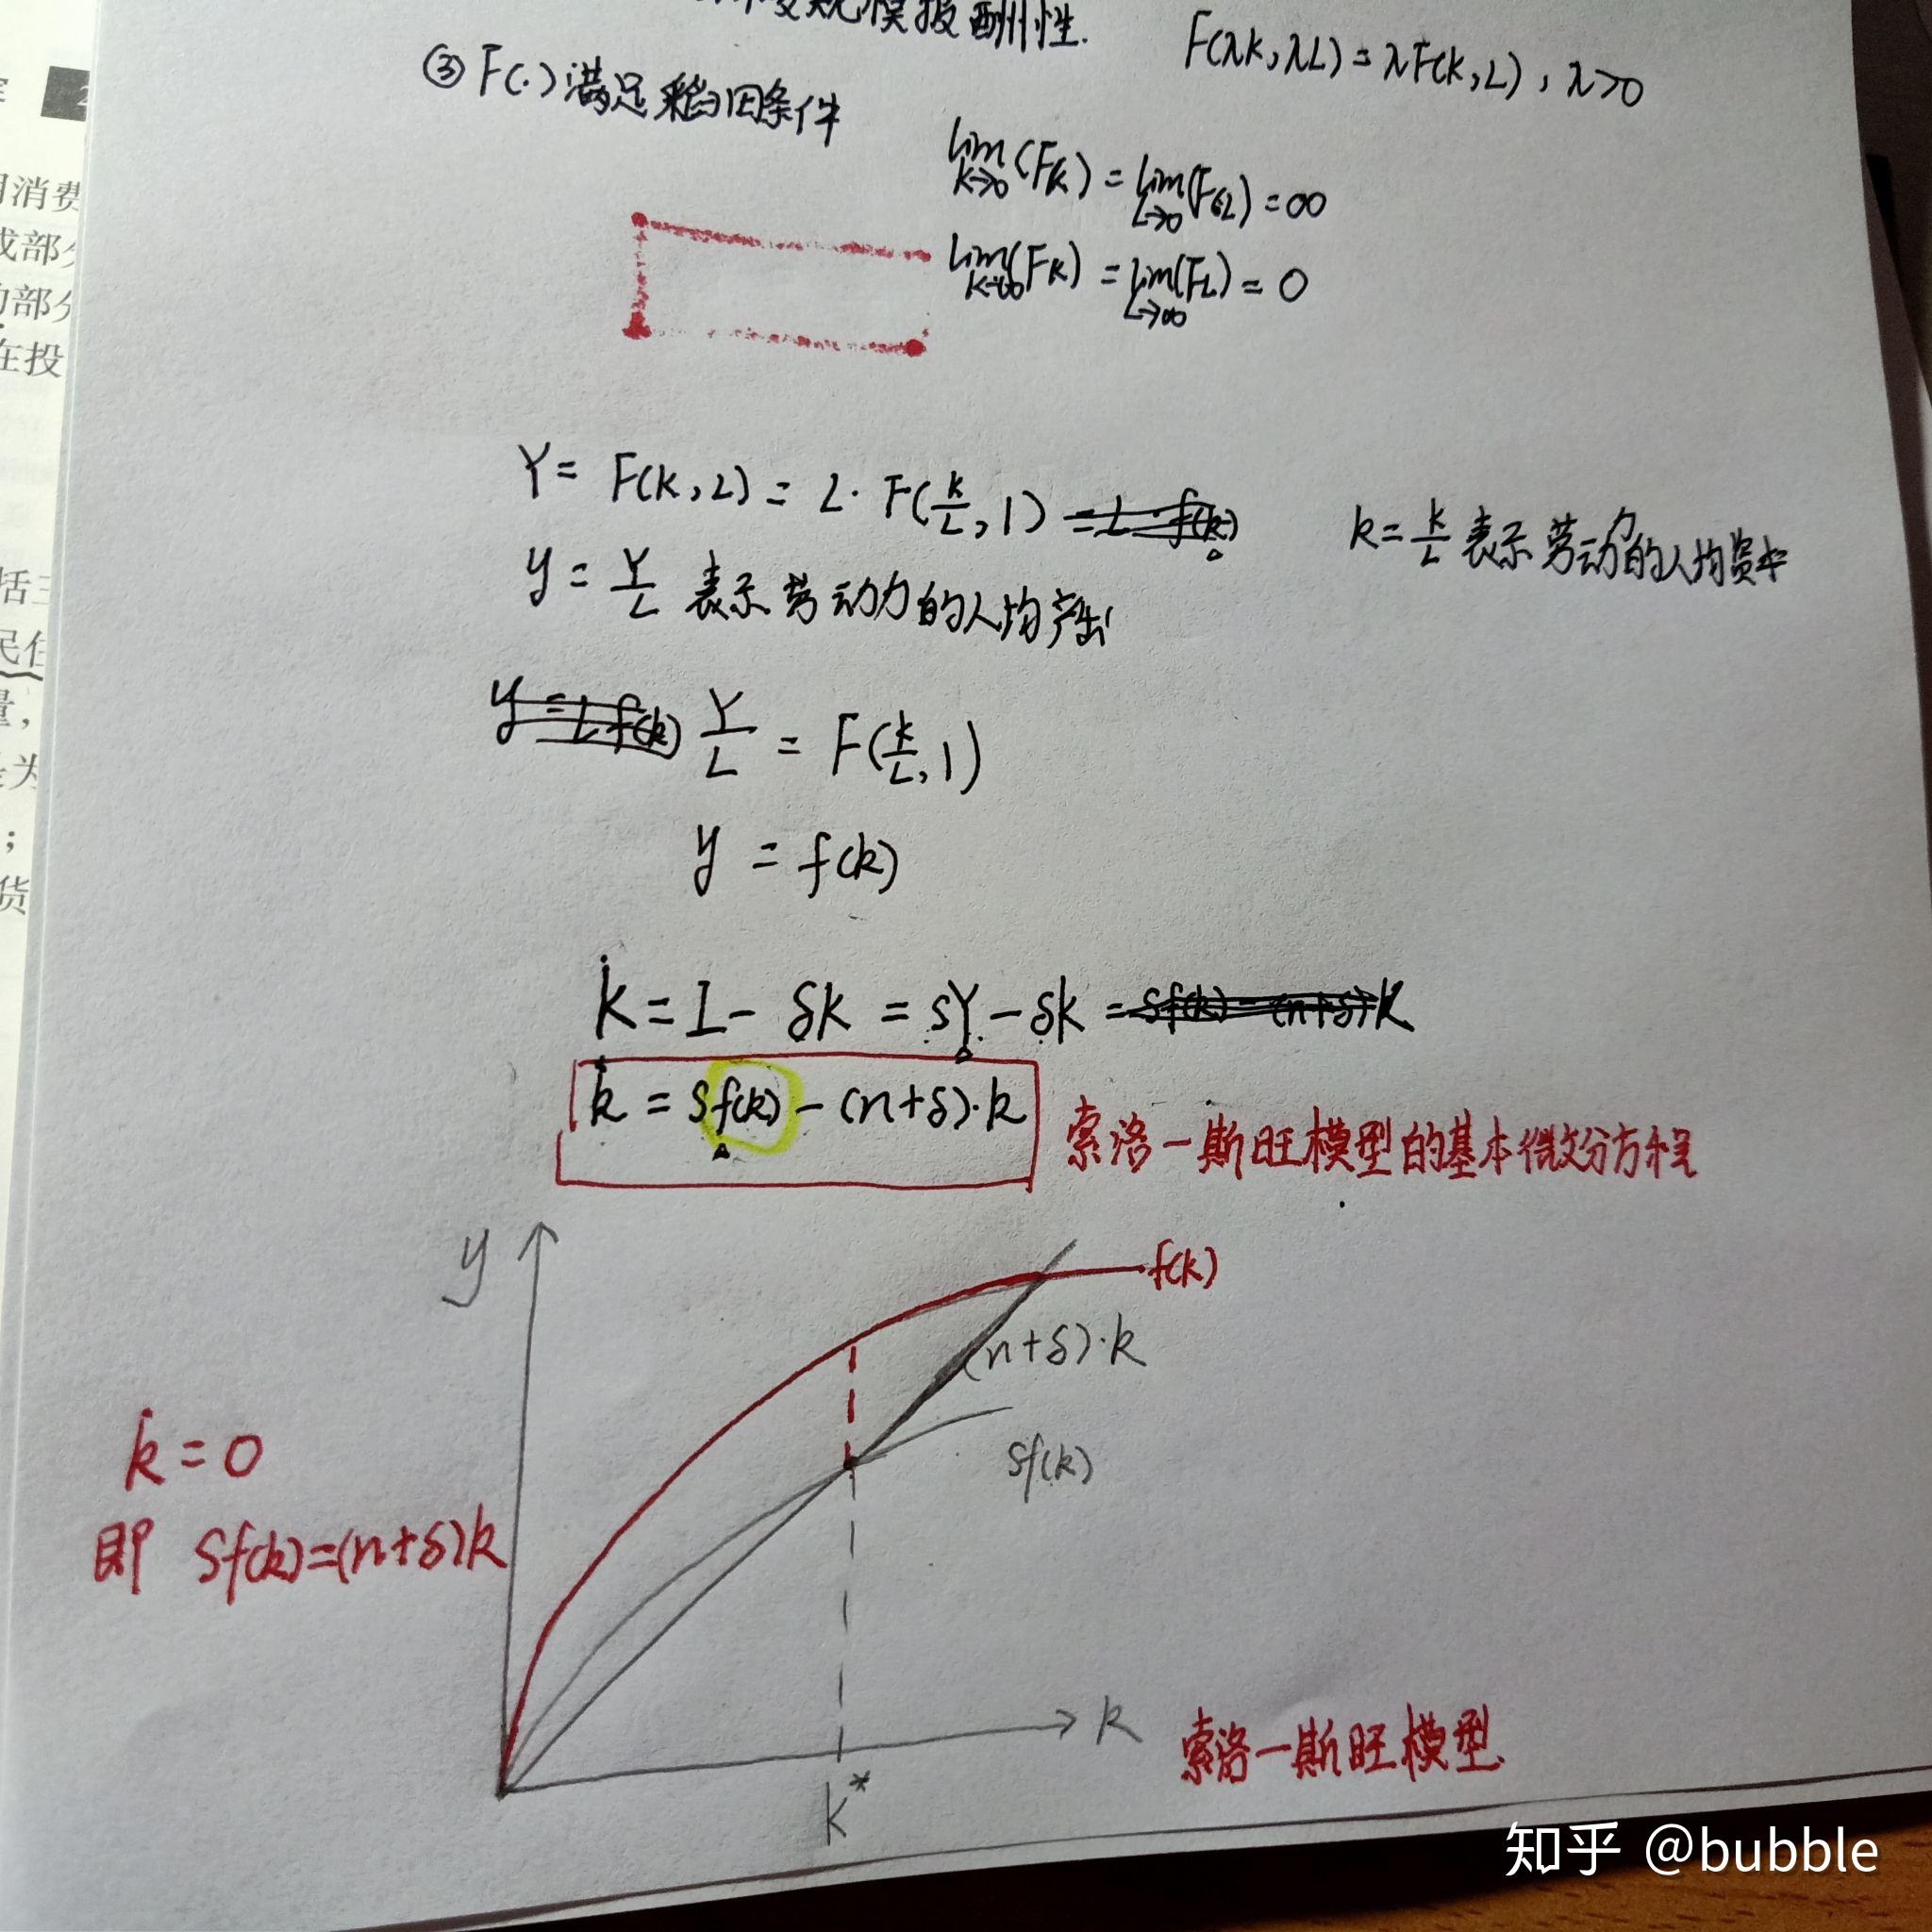 规模报酬性.
F(λK, λL) = λF(K, L), λ>0
③ F(·) 满足稻田条件
lim K→0 (F_K) = lim L→0 (F_L) = ∞
lim K→∞ (F_K) = lim L→∞ (F_L) = 0
Y = F(K, L) = L · F(K/L, 1) = L · f(k)
k = K/L 表示劳动力的人均资本
y = Y/L 表示劳动力的人均产出
y = L f(k) Y/L = F(K/L, 1)
y = f(k)
K̇ = I - δK = sY - δK = sf(k) - (n+δ)k
k̇ = sf(k) - (n+δ)·k
索洛一斯旺模型的基本微分方程
y
f(k)
(n+δ)·k
sf(k)
k̇ = 0
即 sf(k)=(n+δ)k
k
k*
索洛一斯旺模型.
消费
成部分
的部分
在投
括三
民住
量,
是为
;
货
知乎 @bubble